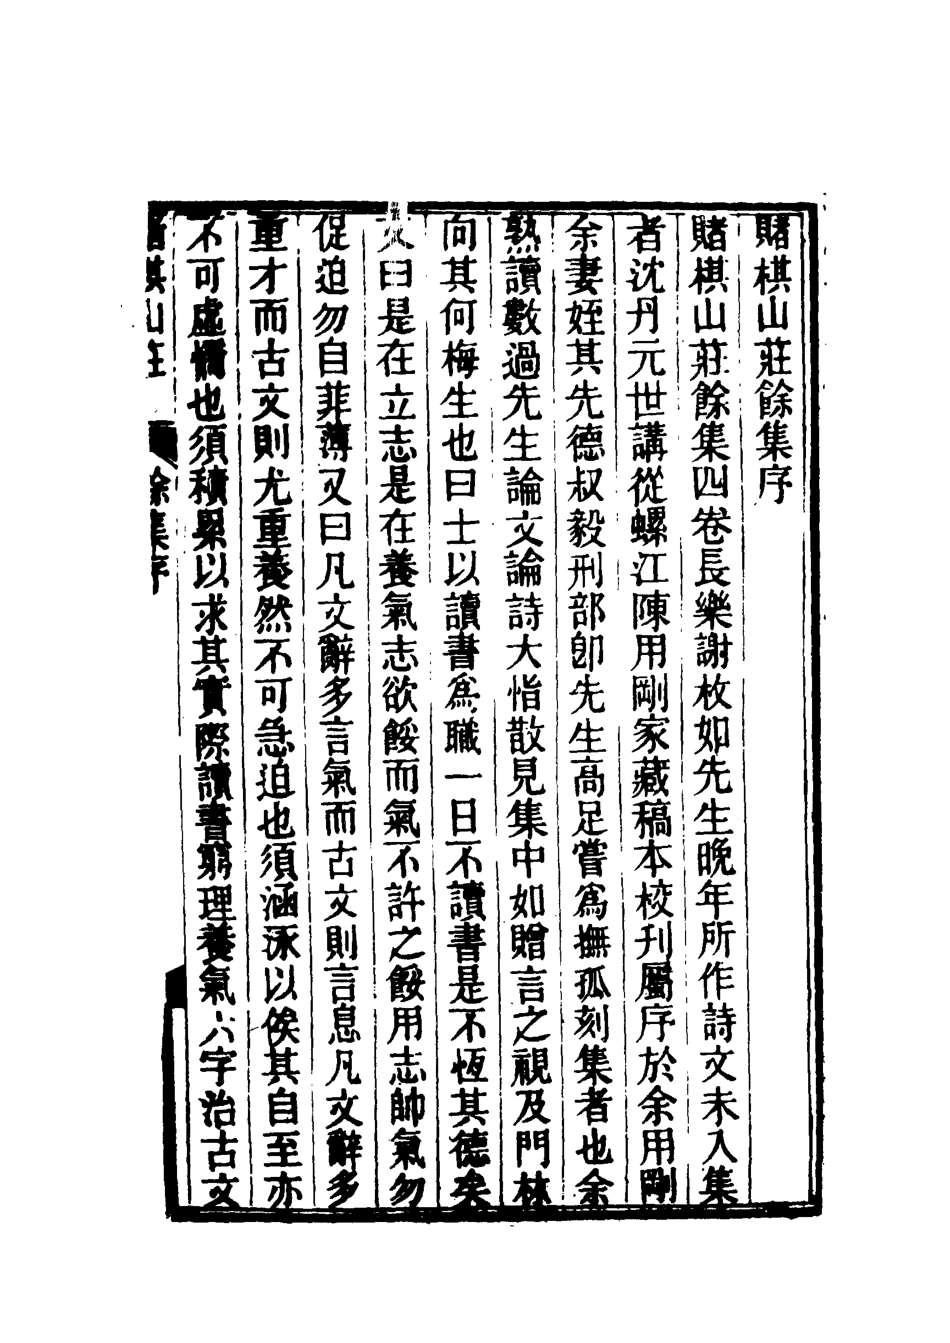 賭棋山莊餘集序
賭棋山莊餘集四卷長樂謝枚如先生晚年所作詩文未入集
者沈丹元世講從螺江陳用剛家藏稿本校刊屬序於余用剛
余妻姪其先德叔毅刑部卽先生高足嘗爲撫孤刻集者也余
熟讀數過先生論文論詩大恉散見集中如贈言之視及門林
向其何梅生也曰士以讀書爲職一日不讀書是不恆其德矣
又曰是在立志是在養氣志欲餒而氣不許之餒用志帥氣勿
促迫勿自菲薄又曰凡文辭多言氣而古文則言息凡文辭多
重才而古文則尤重養然不可急迫也須涵泳以俟其自至亦
不可虛憍也須積累以求其實際讀書窮理養氣六字治古文
賭棋山莊 餘集序